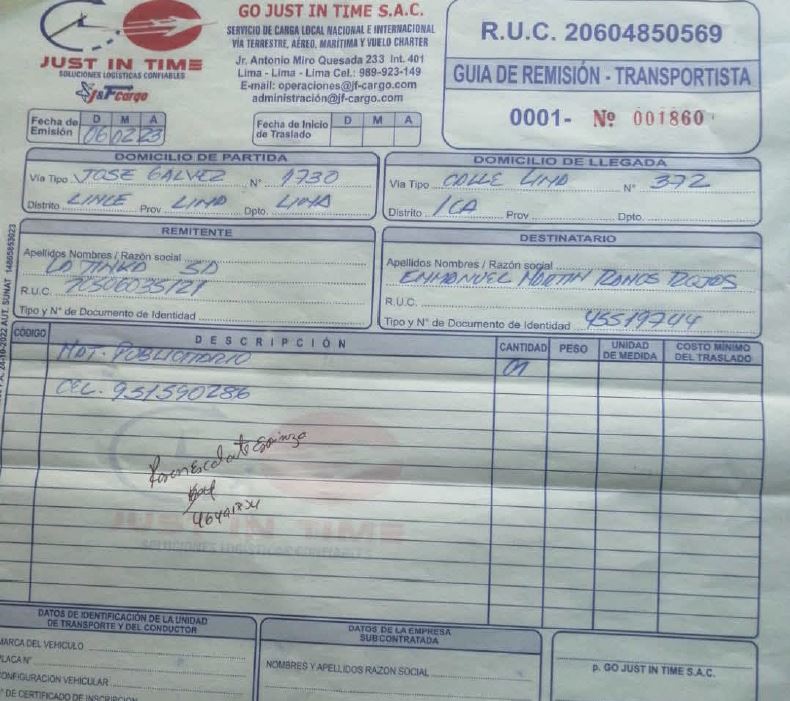 GO JUST IN TIME S.A.C.
SERVICIO DE CARGA LOCAL NACIONAL E INTERNACIONAL
VÍA TERRESTRE, AÉREO, MARÍTIMA Y VUELO CHARTER
Jr. Antonio Miro Quesada 233 Int. 401
Lima - Lima - Lima Cel.: 989-923-149
E-mail: operaciones@jf-cargo.com
administración@jf-cargo.com
JUST IN TIME
SOLUCIONES LOGÍSTICAS CONFIABLES
J&F cargo
R.U.C. 20604850569
GUIA DE REMISIÓN - TRANSPORTISTA
0001- Nº 001860
Fecha de Emisión D M A
06 02 23
Fecha de Inicio de Traslado D M A
DOMICILIO DE PARTIDA
Vía Tipo JOSE GALVEZ N° 1730
Distrito LINCE Prov LIMA Dpto. LIMA
DOMICILIO DE LLEGADA
Via Tipo CALLE LIMA N° 372
Distrito ICA Prov Dpto.
REMITENTE
Apellidos Nombres / Razón social
LA TINKA SA
R.U.C. 20506035121
Tipo y N° de Documento de Identidad
DESTINATARIO
Apellidos Nombres / Razón social
EMMANUEL MARTIN RAMOS ROJAS
R.U.C.
Tipo y N° de Documento de Identidad 45519744
CÓDIGO DESCRIPCIÓN CANTIDAD PESO UNIDAD DE MEDIDA COSTO MÍNIMO DEL TRASLADO
MAT. PUBLICITARIO 01
CEL. 931390286
46491834
DATOS DE IDENTIFICACIÓN DE LA UNIDAD
DE TRANSPORTE Y DEL CONDUCTOR
MARCA DEL VEHICULO
PLACA N°
CONFIGURACIÓN VEHICULAR
N° DE CERTIFICADO DE INSCRIPCIÓN
DATOS DE LA EMPRESA
SUBCONTRATADA
NOMBRES Y APELLIDOS RAZON SOCIAL
p. GO JUST IN TIME S.A.C.